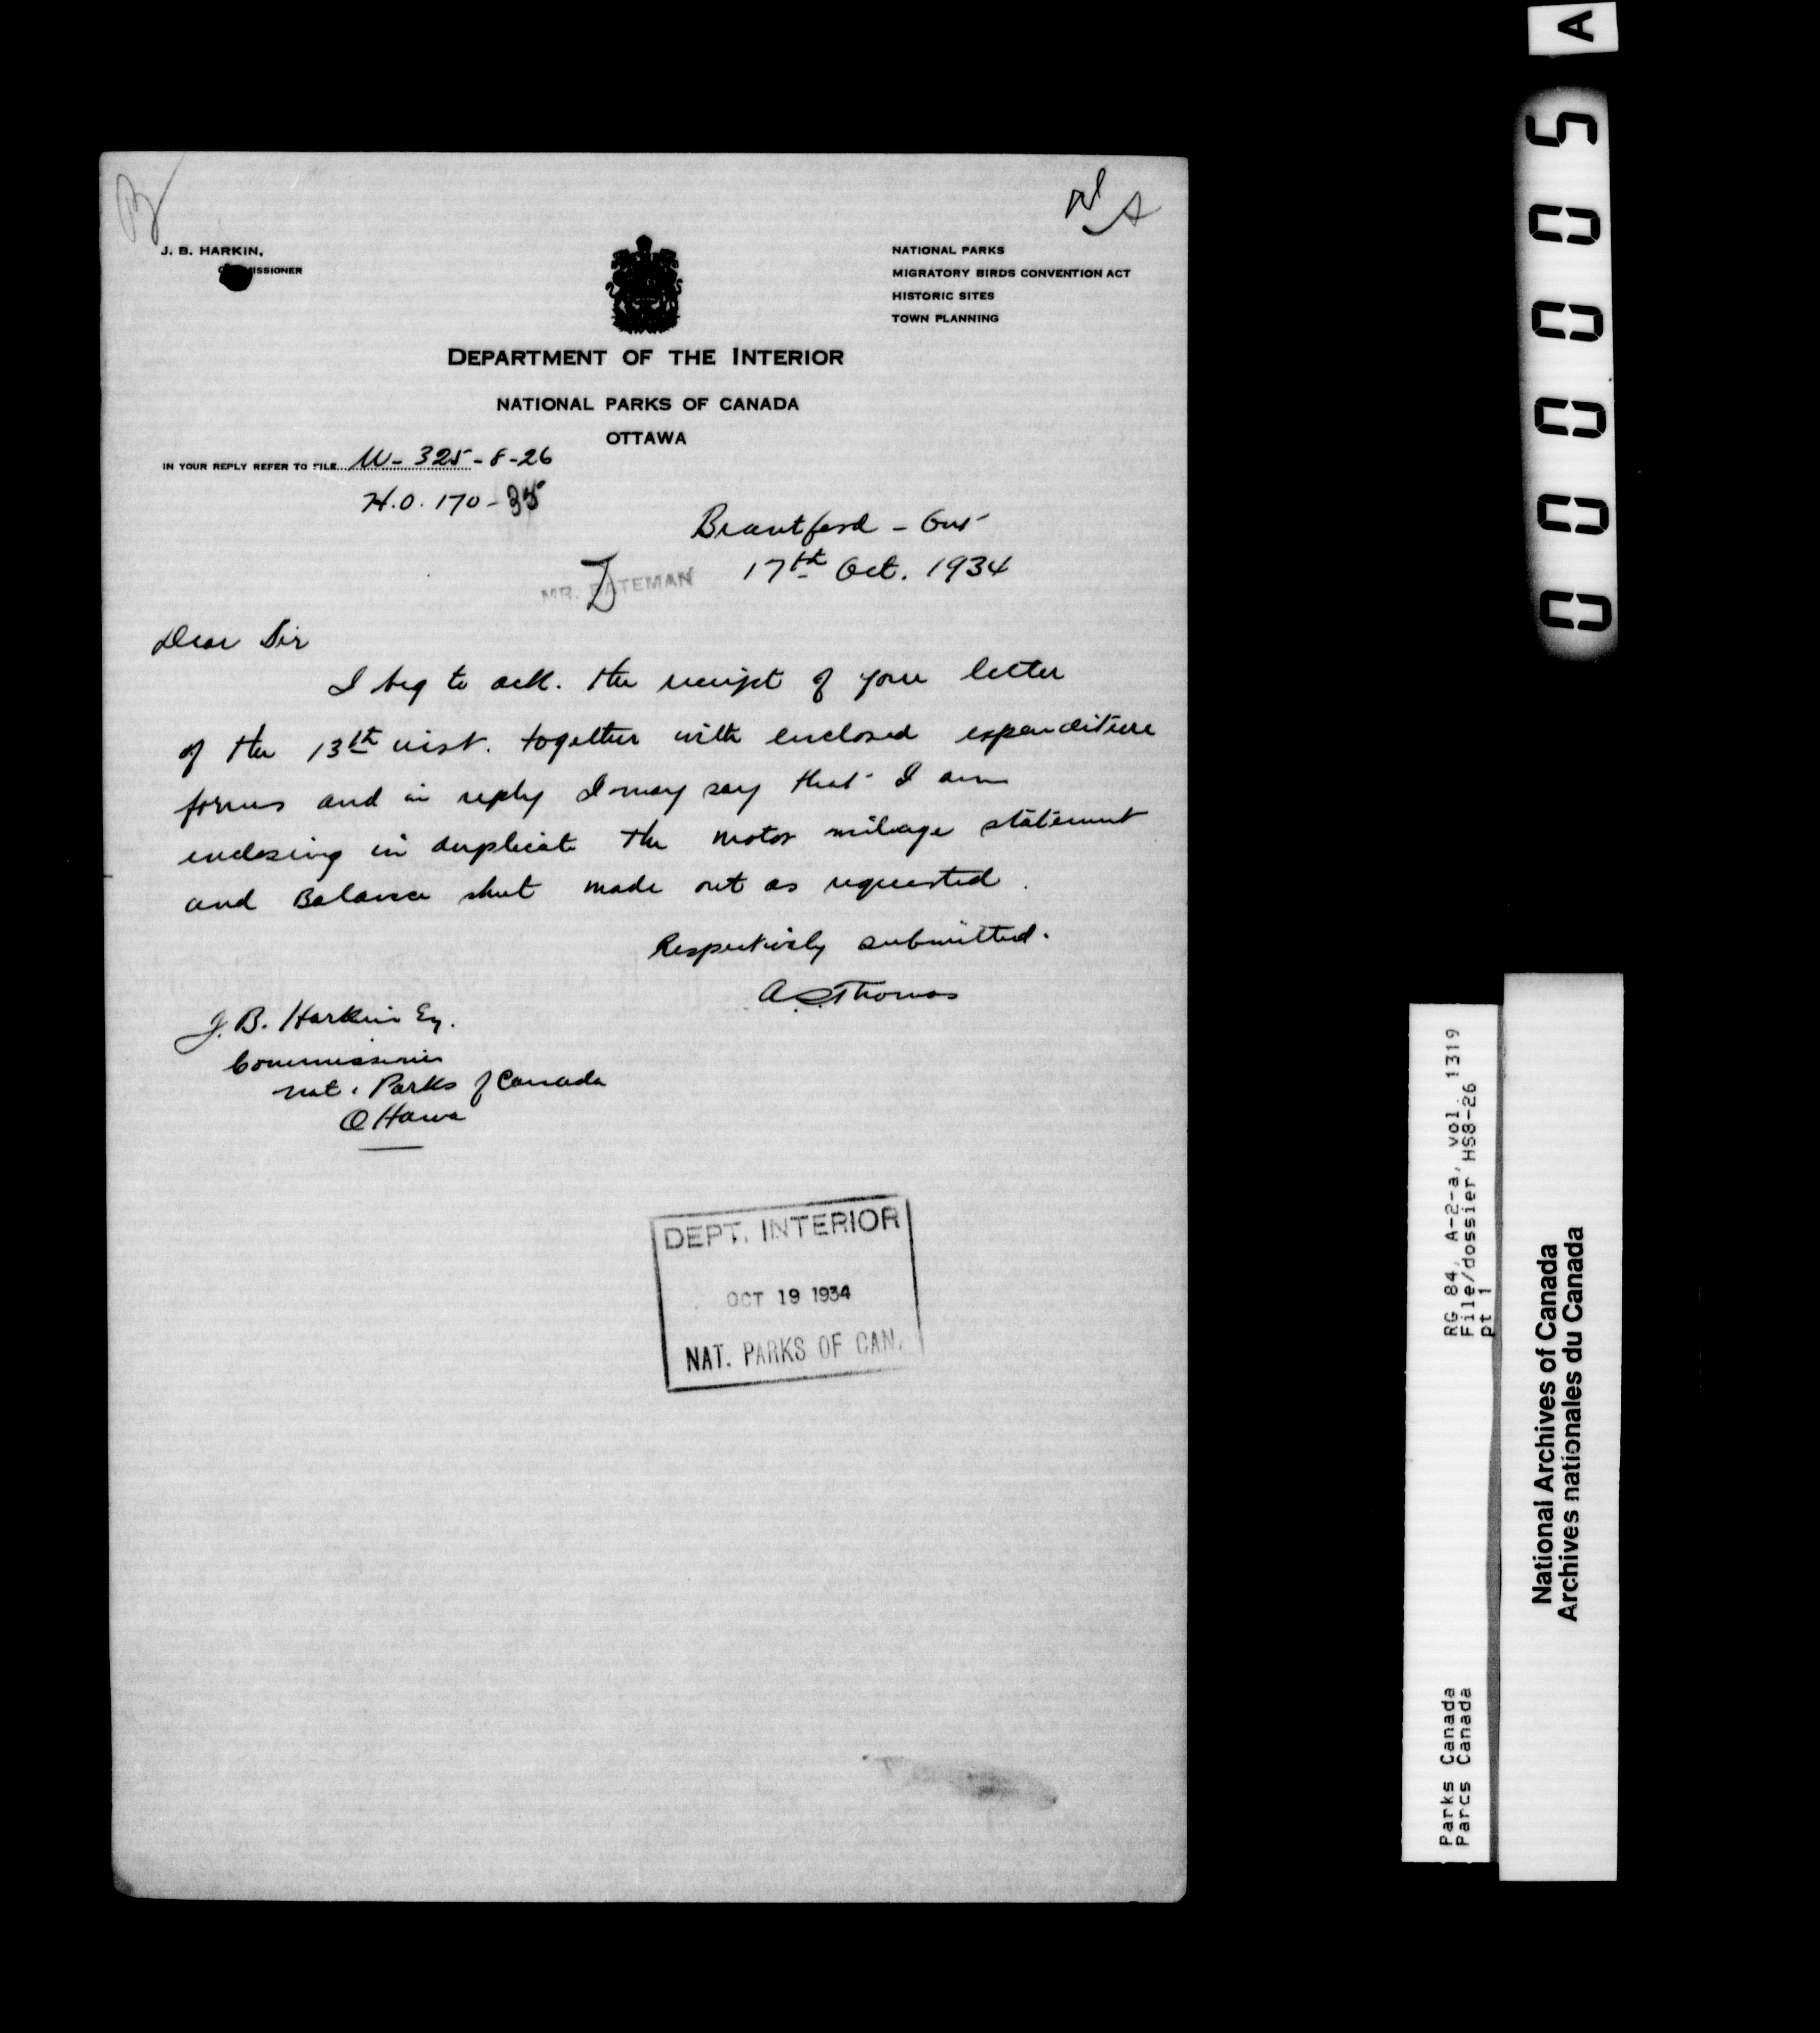 J. B. HARKIN,
COMMISSIONER
NATIONAL PARKS
MIGRATORY BIRDS CONVENTION ACT
HISTORIC SITES
TOWN PLANNING
DEPARTMENT OF THE INTERIOR
NATIONAL PARKS OF CANADA
OTTAWA
IN YOUR REPLY REFER TO FILE W-325-8-26
H.O. 170-35
Brantford - Ont
17th Oct. 1934
MR. BATEMAN
Dear Sir
I beg to ack. the receipt of your letter
of the 13th inst. together with enclosed expenditure
forms and in reply I may say that I am
enclosing in duplicate the motor mileage statement
and Balance sheet made out as requested.
Respectively submitted.
A S Thomas
J. B. Harkin Eq.
Commissioner
Nat. Parks of Canada
Ottawa
DEPT. INTERIOR
OCT 19 1934
NAT. PARKS OF CAN.
000005 A
RG 84, A-2-a, vol. 1319
File/dossier HS8-26
pt 1
Parks Canada
Parcs Canada
National Archives of Canada
Archives nationales du Canada